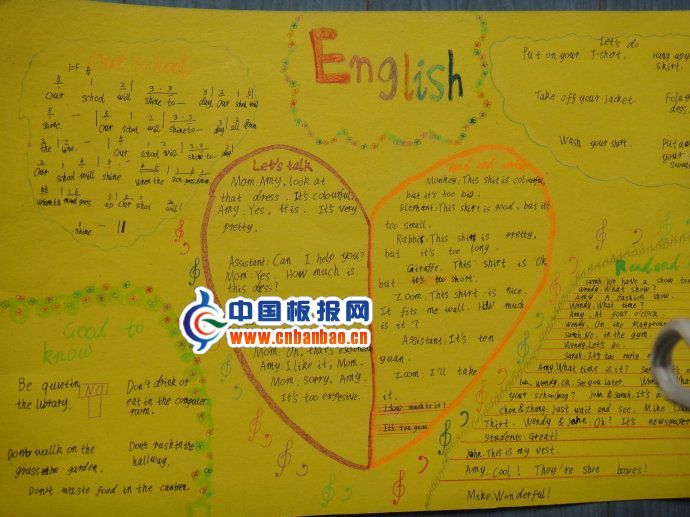 English
Our school
1=F
Our school will shine to— day, Our school will
shine. — Our school will shine to— day, all down
the line. — Our school will shine to— day
Our school will shine when the sun goes down
when the moon Our school will
shine —
Let's do
Put on your T-shirt.
Hang up your
skirt.
Take off your jacket.
Wash your shirt.
Put on your
Let's talk
Mom: Amy, look at
that dress. It's colourful.
Amy: Yes, it is. It's very
pretty.
Assistant: Can I help you?
Mom: Yes. How much is
this dress?
Mom: Oh, that's expensive
Amy: I like it, Mom.
Mom: Sorry, Amy.
It's too expesive.
Read and write
Monkey: This shit is colourful,
but it's too big.
Elephant: This shirt is good, but it's
too small.
Rabbit: This shirt is pretty,
but it's too long.
Giraffe: This shirt is OK,
but it's too short.
Zoom: This shirt is nice.
It fits me wall. How much
is it?
Assistant: It's ten
yuan.
Zoom I'll take
it.
How much is it?
It's ten yuan.
中国板报网
www.cnbanbao.cn
Good to
know
Be quiet in
the library.
NO
Don't drink or
eat in the computer
room.
Don't walk on the
grass in the garden.
Don't push in the
hallway.
Don't waste food in the canteen.
Read and
Sarah: We have a show to
Wendy: What show?
Amy: A fashion show.
Wendy: What time?
Amy: At four o'clock.
Wendy: On the playground
Sarah: No, in the gym.
Wendy: Let's go.
Sarah: It's too early
Amy: What time is it? Sarah:
Wendy: Ok. See you later. Wendy: What's
your schoolbag? John & Sarah: It's a
Chen & Zhang: Just wait and see. Mike: Look
Thirt. Wendy & John: Oh! It's newspaper
Students: Great!
John: This is my vest.
Amy: Cool! They're shoe boxes!
Mike: Wonderful!